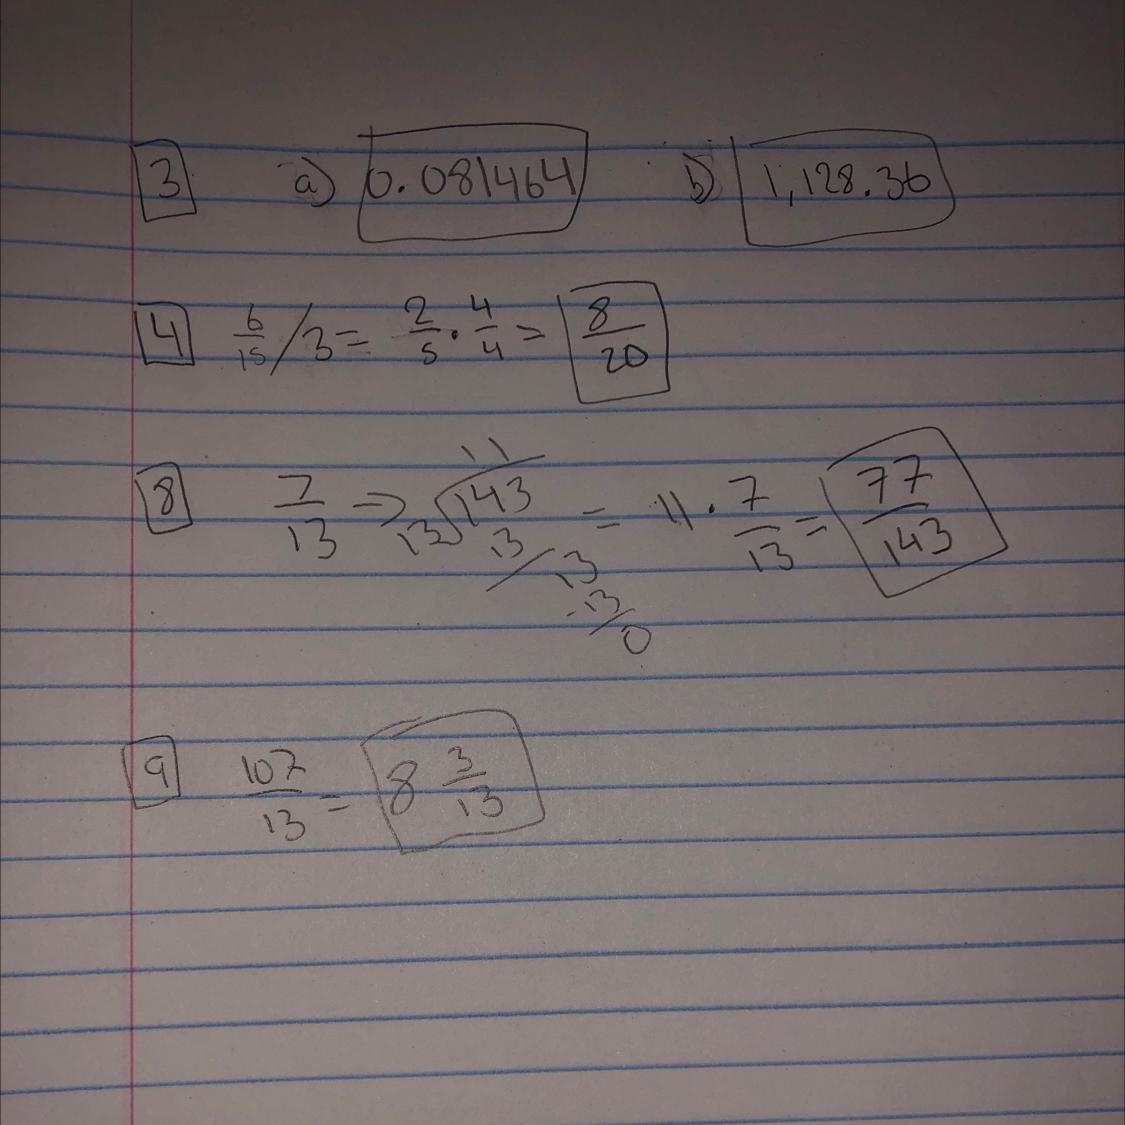 3 a) 0.081464 b) 1,128.36
4 6/15 / 3 = 2/5 · 4/4 = 8/20
8 7/13 → 13)143 11 = 11 · 7/13 = 77/143
13
13
-13
0
9 107/13 = 8 3/13